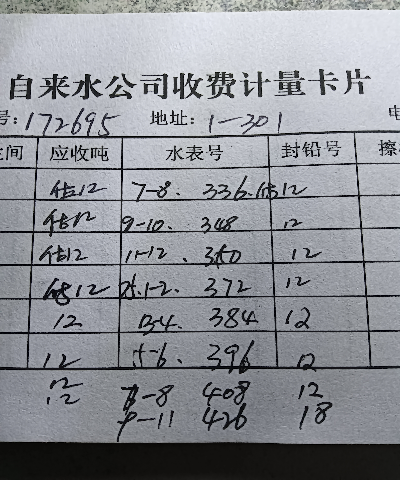 自来水公司收费计量卡片
号: 172695 地址: 1-301
间 应收吨 水表号 封铅号
估12 7-8. 336.估12
估12 9-10. 348 12
估12 11-12 360 12
估12 25.1-2. 372 12
12 3-4. 384 12
12 5-6. 396 12
12 7-8 408 12
12 9-11 426 18